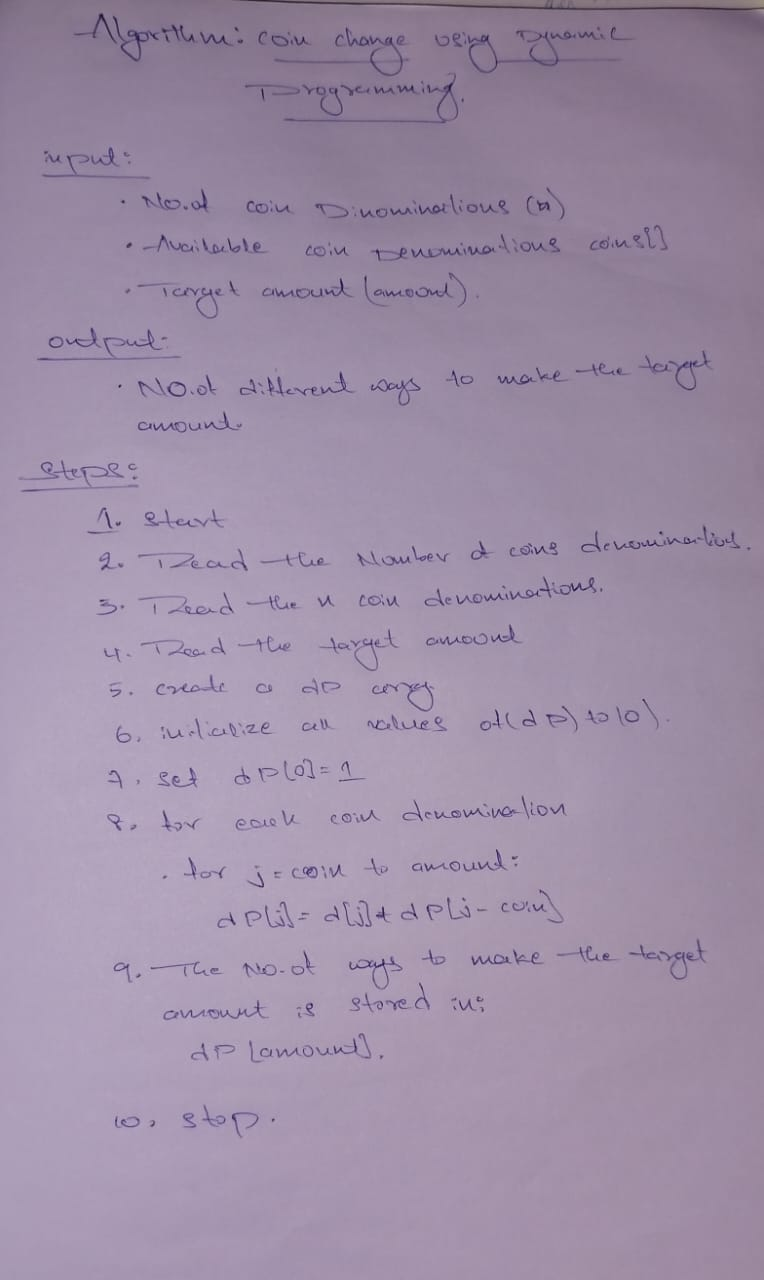 Algorithm: coin change using Dynamic
Programming.
input:
• No.of coin Dinominations (n)
• Available coin Denominations coins[]
• Target amount (amount).
output:
• NO.of different ways to make the target
amount.
Steps:
1. Start
2. Read the Number of coins denominations.
3. Read the n coin denominations.
4. Read the target amount
5. create a dp array
6. initialize all values of (dp) to (0).
7. set dp[0]=1
8. for each coin denomination
• for j = coin to amount:
dp[j] = d[j] + dp[j - coin]
9. The No.of ways to make the target
amount is stored in:
dp [amount].
10. stop.